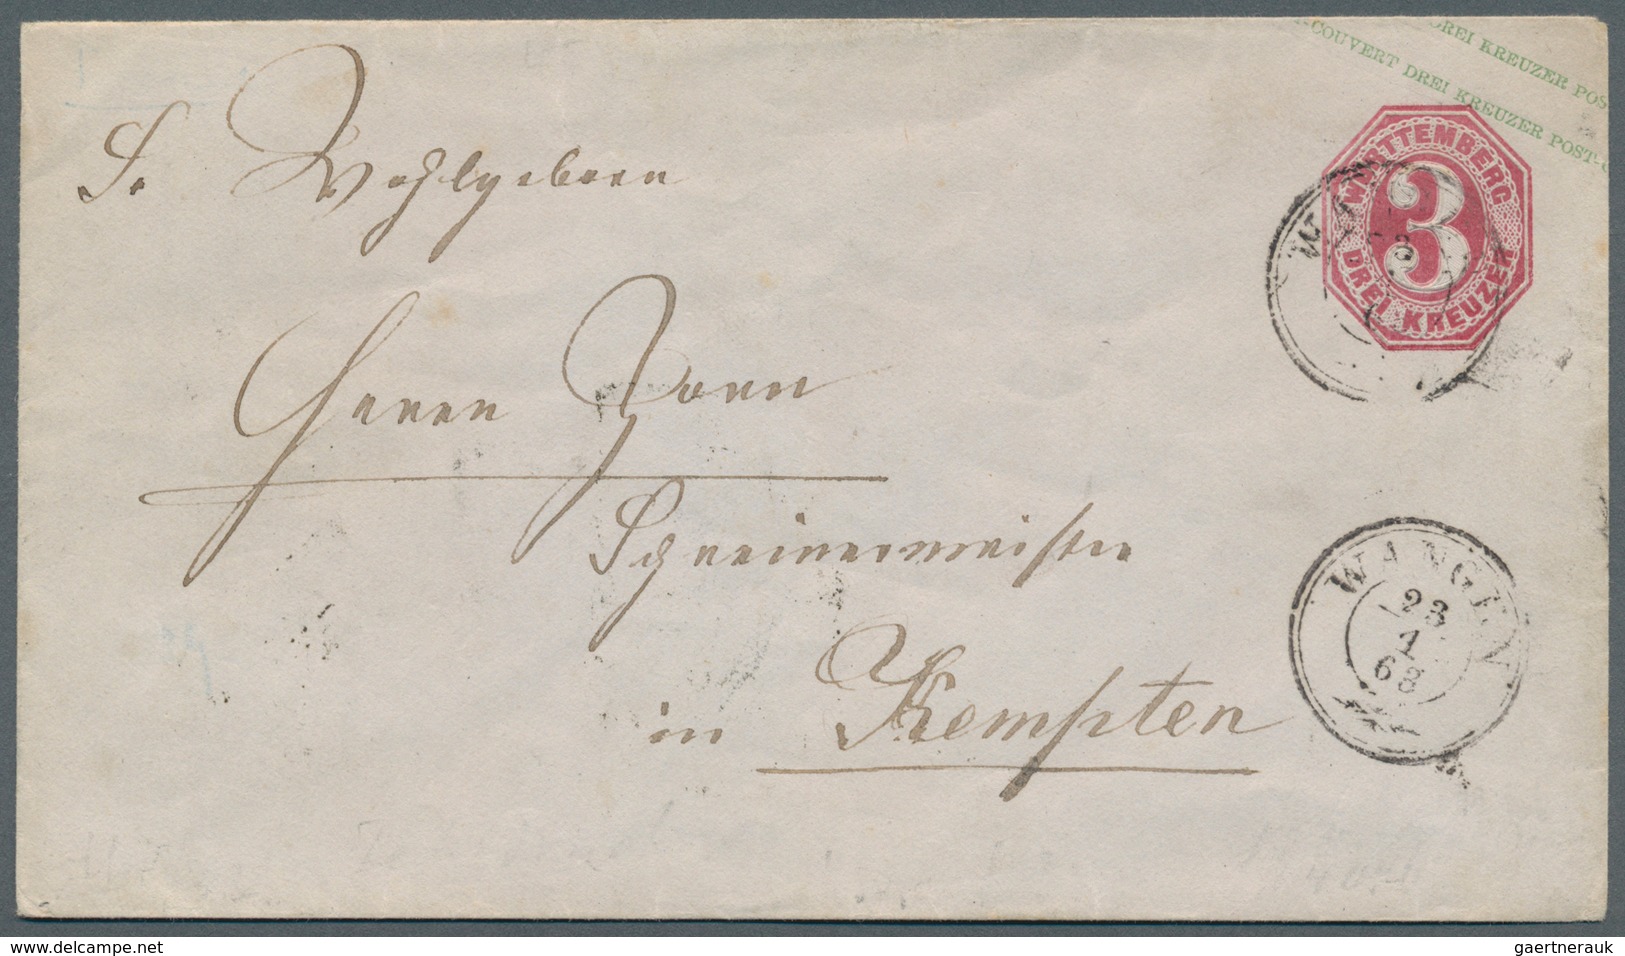 COUVERT DREI KREUZER POST-
DREI KREUZER POS
WÜRTTEMBERG
3
DREI KREUZER
S. Wohlgeboren
Herrn Zorn
Schreinermeister
in Kempten
WANGEN
23
1
68
www.delcampe.net
gaertnerauk